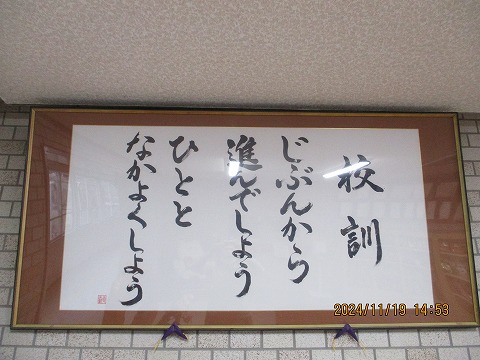 校訓
じぶんから
進んでしよう
ひとと
なかよくしよう
2024/11/19 14:53